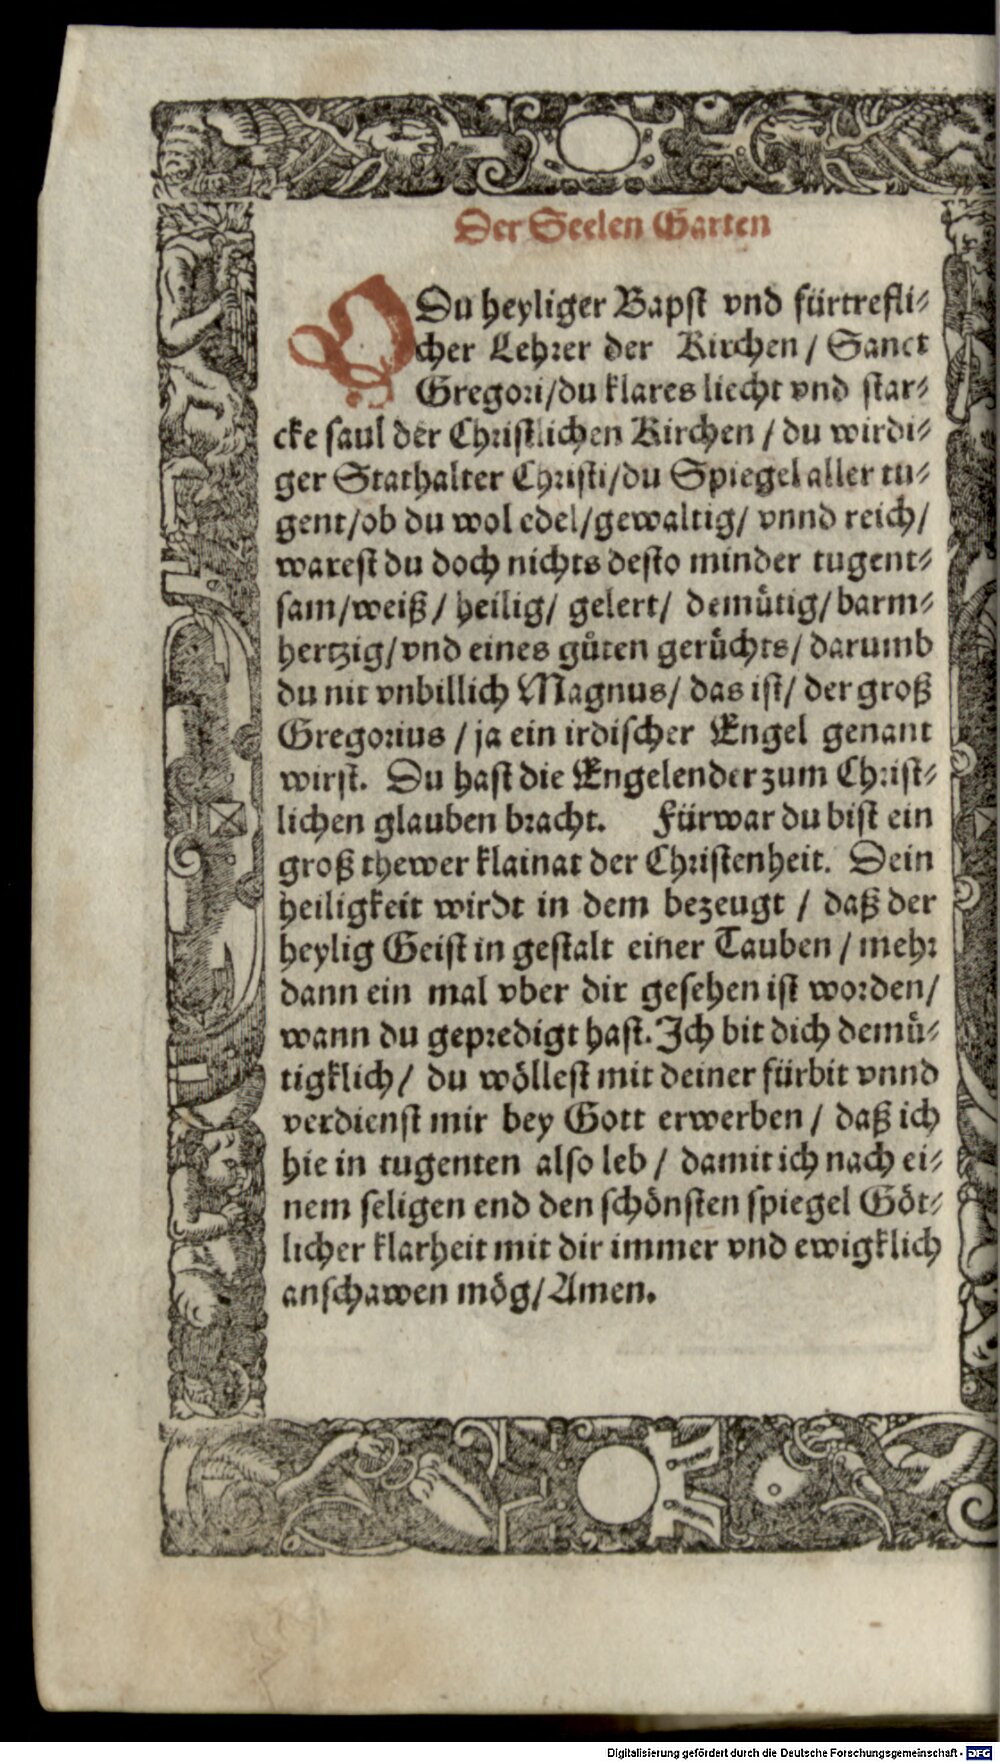 Der Seelen Garten
O Du heyliger Bapst vnd fürtrefli⸗
cher Lehrer der Kirchen / Sanct
Gregori/du klares liecht vnd star⸗
cke saul der Christlichen Kirchen / du wirdi⸗
ger Stathalter Christi/du Spiegel aller tu⸗
gent/ob du wol edel/gewaltig/ vnnd reich/
warest du doch nichts desto minder tugent⸗
sam/weiß / heilig/ gelert/ demuͤtig/barm⸗
hertzig/vnd eines guͦten geruͤchts/ darumb
du nit vnbillich Magnus/ das ist/ der groß
Gregorius / ja ein irdischer Engel genant
wirst. Du hast die Engelender zum Christ⸗
lichen glauben bracht. Fürwar du bist ein
groß thewer klainat der Christenheit. Dein
heiligkeit wirdt in dem bezeugt / daß der
heylig Geist in gestalt einer Tauben / mehr
dann ein mal vber dir gesehen ist worden/
wann du gepredigt hast. Ich bit dich demuͤ⸗
tigklich/ du woͤllest mit deiner fürbit vnnd
verdienst mir bey Gott erwerben / daß ich
hie in tugenten also leb / damit ich nach ei⸗
nem seligen end den schoͤnsten spiegel Goͤt⸗
licher klarheit mit dir immer vnd ewigklich
anschawen moͤg/ Amen.
Digitalisierung gefördert durch die Deutsche Forschungsgemeinschaft - DFG